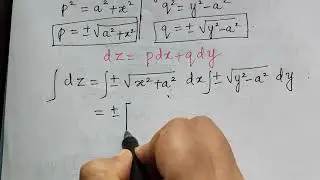 p² = a² + x²   q² = y² - a²
p = ± √a² + x²   q = ± √y² - a²
dz = pdx + qdy
∫ dz = ∫ ± √x² + a² dx ∫ ± √y² - a² dy
= ± [